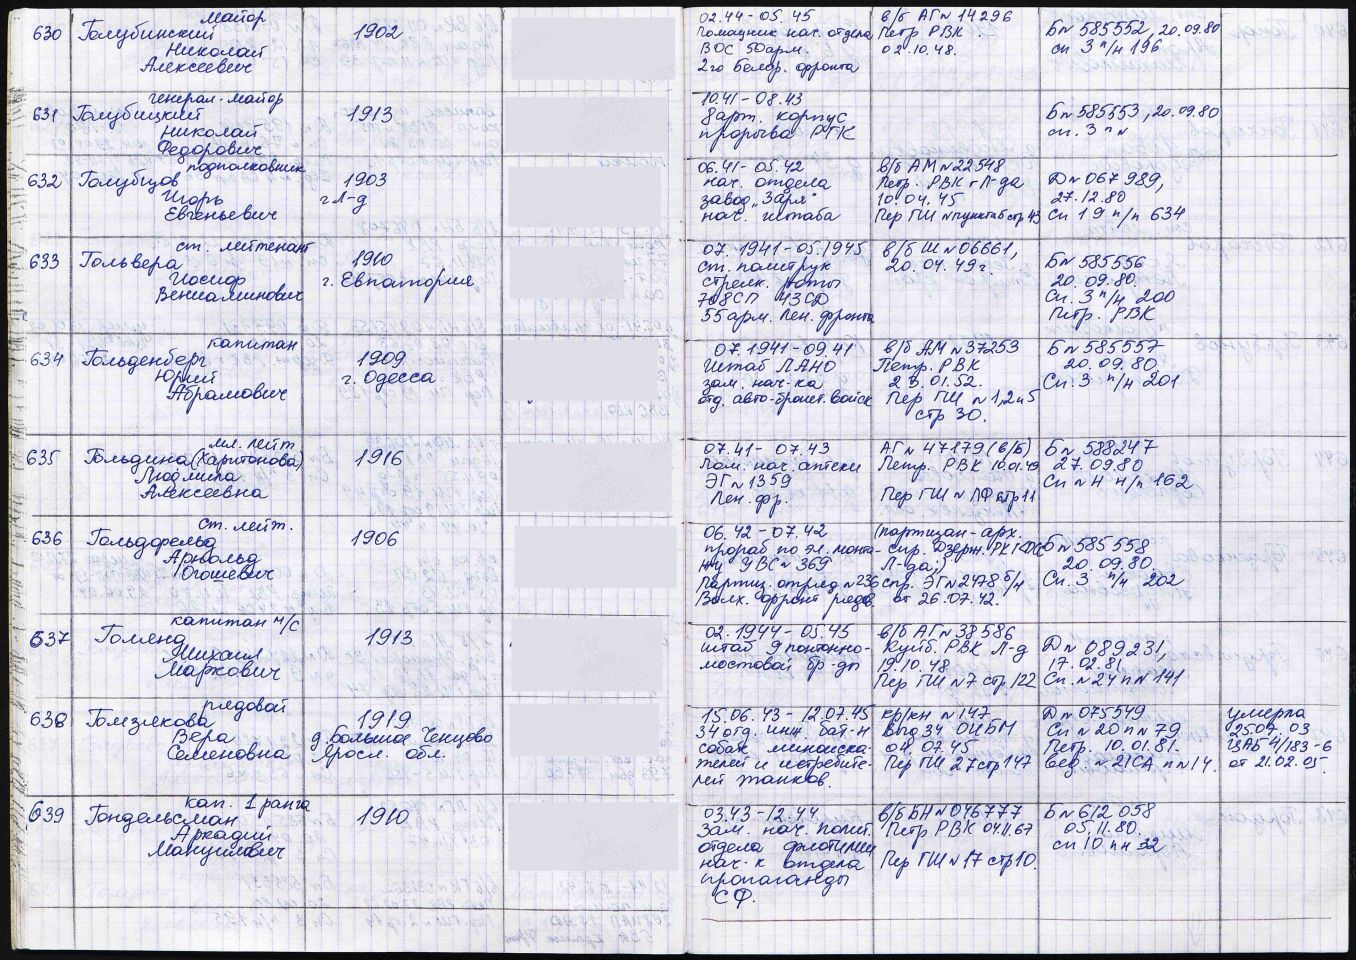 майор
630 Голубинский 1902
Николай
Алексеевич
02.44-05.45
Помощник нач. отдела
ВОС 50 арм.
2го Белор. фронта
в/б АГ № 14296
Петр РВК
02.10.48.
Б№ 585552, 20.09.80
сп 3 п/н 196
генерал-майор
631 Голубицкий 1913
Николай
Федорович
10.41-08.43
8 арт. корпус
прорыва РГК
Б№ 585553, 20.09.80
сп. 3 п №
подполковник
632 Голубцов 1903
Игорь г Л-д
Евгеньевич
06.41-05.42
нач. отдела
завод "Заря"
нач. штаба
в/б АМ № 22548
Петр. РВК г Л-да
10.04.45
Пер ГШ № пункта б стр 43
Д№ 067989,
27.12.80
Сп 19 п/п 634
ст. лейтенант
633 Гольвера 1910
Иосиф г. Евпатория
Вениаминович
07.1941-05.1945
ст. политрук
стрелк. роты
708 СП 43 СД
55 арм. Лен. фронта
в/б Ш № 06661,
20.04.49 г.
Б№ 585556
20.09.80.
Сп. 3 п/н 200
Петр. РВК
капитан
634 Гольденберг 1909
Юрий г. Одесса
Абрамович
07.1941-09.41
Штаб ЛАНО
зам. нач-ка
отд. авто-бронет. войск
в/б АМ № 37253
Петр. РВК
23.01.52.
Пер ГШ № 1,2 и 5
стр 30.
Б№ 585557
20.09.80
Сп. 3 п/н 201
мл. лейт.
635 Гольдина (Харитонова) 1916
Людмила
Алексеевна
07.41-07.43
Пом. нач. аптеки
ЭГ № 1359
Лен. фр.
АГ № 47179 (в/б)
Петр. РВК 10.01.49
Пер ГШ № ЛФ стр 11
Б№ 588247
27.09.80
Сп № 4 п/п 162
ст. лейт.
636 Гольдфельд 1906
Арнольд
Огошевич
06.42-07.42
прораб по эл. монта-
жу УВС № 369
Партиз. отряд № 236
Волх. фронт рядов.
(партизан-арх.
спр. Дзерж. РК КПСС
Л-да;)
спр. ЭГ № 2478 б/н
от 26.07.42.
Б№ 585558
20.09.80.
Сп. 3 п/н 202
капитан м/с
637 Голянд 1913
Михаил
Маркович
02.1944-05.45
штаб 9 понтонно-
мостовой бр-ды
в/б АГ № 38586
Куйб. РВК Л-д
19.10.48
Пер ГШ № 7 стр 122
Д№ 089231,
17.02.81
Сп. № 24 п № 141
рядовой
638 Гомзякова 1919
Вера д. Большое Ченцово
Семеновна Яросл. обл.
15.06.43-12.07.45
34 отд. инж. бат-н
собак миноиска-
телей и истребите-
лей танков.
кр/кн № 147
Выд 34 ОИБМ
от 07.45
Пер ГШ 27 стр 147
Д№ 075549
Сп № 20 п № 79
Петр. 10.01.81.
вед. № 21СА п № 14.
умерла
25.07.03
ЦАБ 4/183-6
от 21.02.05.
кап. 1 ранга
639 Гондельсман 1910
Аркадий
Мануилович
03.43-12.44
Зам. нач. полит.
отдела флотилии
нач-к отдела
пропаганды
СФ.
в/б БН № 046777
Петр РВК 04.11.67
Пер ГШ № 17 стр 10.
Б№ 612058
05.11.80.
сп 10 п н 32